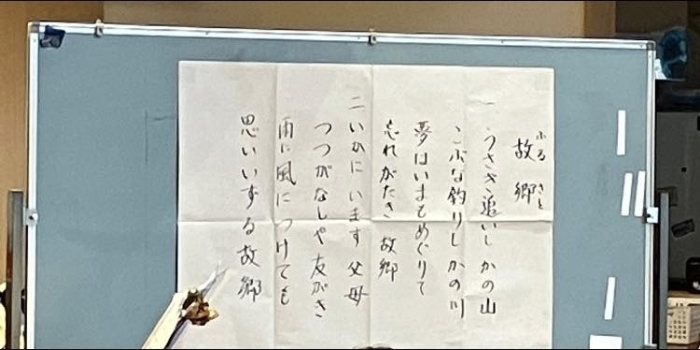 故郷
ふるさと
一 うさぎ追いしかの山
こぶな釣りしかの川
夢はいまもめぐりて
忘れがたき故郷
二 いかにいます父母
つつがなしや友がき
雨に風につけても
思いいずる故郷